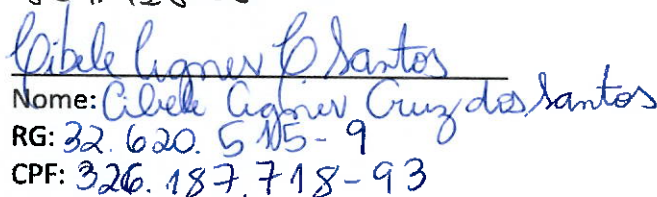 Cibele Agnes C Santos
Nome: Cibele Agnes Cruz dos Santos
RG: 32.620.515-9
CPF: 326.187.718-93